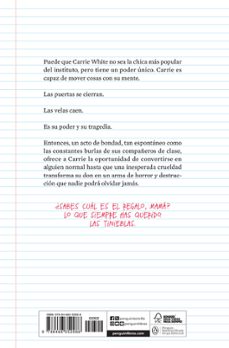 Puede que Carrie White no sea la chica más popular
del instituto, pero tiene un poder único. Carrie es
capaz de mover cosas con su mente.
Las puertas se cierran.
Las velas caen.
Es su poder y su tragedia.
Entonces, un acto de bondad, tan espontáneo como
las constantes burlas de sus compañeros de clase,
ofrece a Carrie la oportunidad de convertirse en
alguien normal hasta que una inesperada crueldad
transforma su don en un arma de horror y destruc-
ción que nadie podrá olvidar jamás.
¿SABES CUÁL ES EL REGALO, MAMÁ?
LO QUE SIEMPRE HAS QUERIDO.
LAS TINIEBLAS.